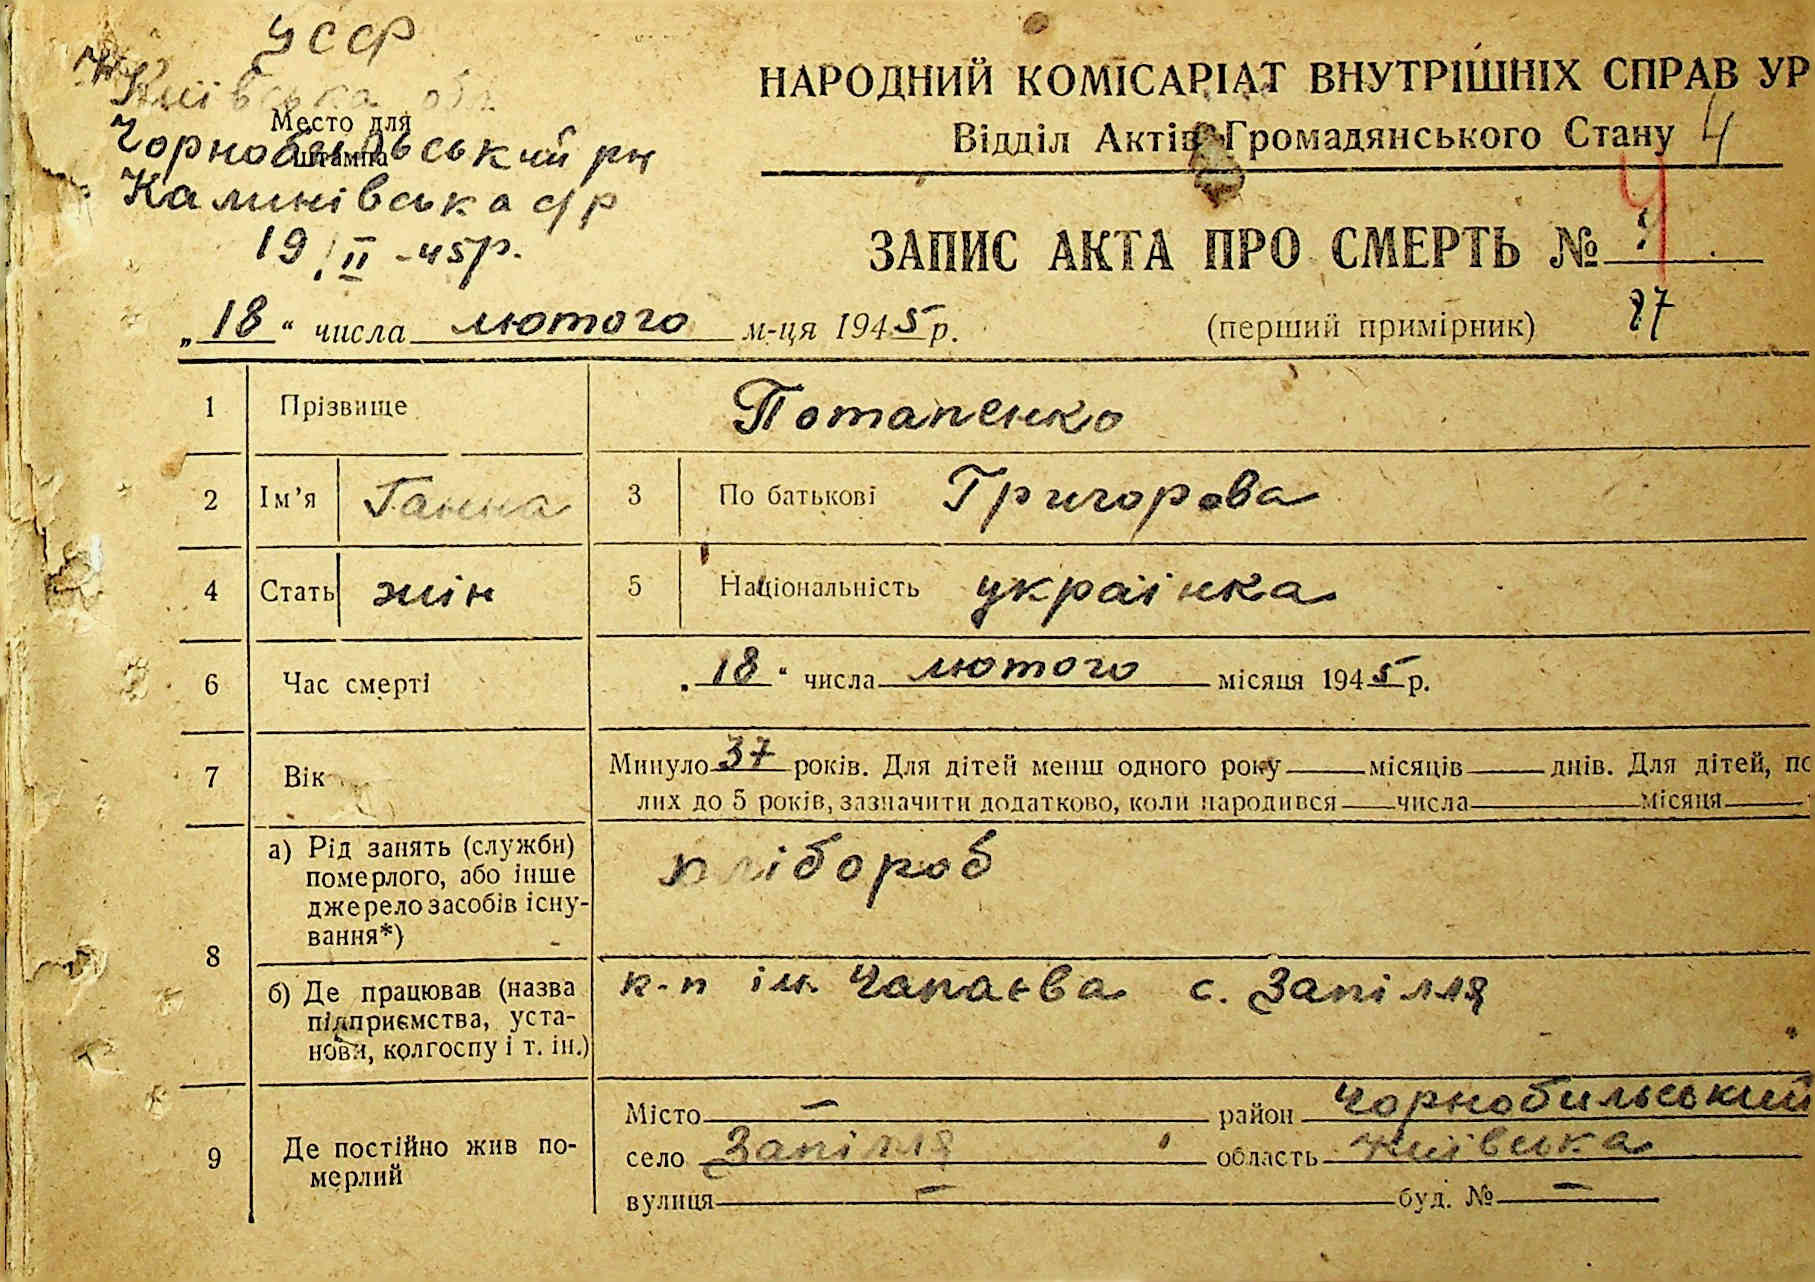 УССР
Київська обл
Место для
штампа
Чорнобильський рн
Калинівська с/р
19/II -45р.
НАРОДНИЙ КОМІСАРІАТ ВНУТРІШНІХ СПРАВ УР
Відділ Актів Громадянського Стану 4
ЗАПИС АКТА ПРО СМЕРТЬ № 4
„18“ числа лютого м-ця 1945 р.
(перший примірник)
1 Прізвище Потапенко
2 Ім’я Ганна 3 По батькові Григорова
4 Стать жін 5 Національність українка
6 Час смерті „18“ числа лютого місяця 1945 р.
7 Вік Минуло 37 років. Для дітей менш одного року місяців днів. Для дітей, по
лих до 5 років, зазначити додатково, коли народився числа місяця
8 а) Рід занять (служби)
померлого, або інше
джерело засобів існу-
вання*)
хлібороб
б) Де працював (назва
підприємства, уста-
нови, колгоспу і т. ін.)
к-п ім. Чапаєва с. Запілля
9 Де постійно жив по-
мерлий
Місто — район Чорнобильський
село Запілля область Київська
вулиця — буд. № —